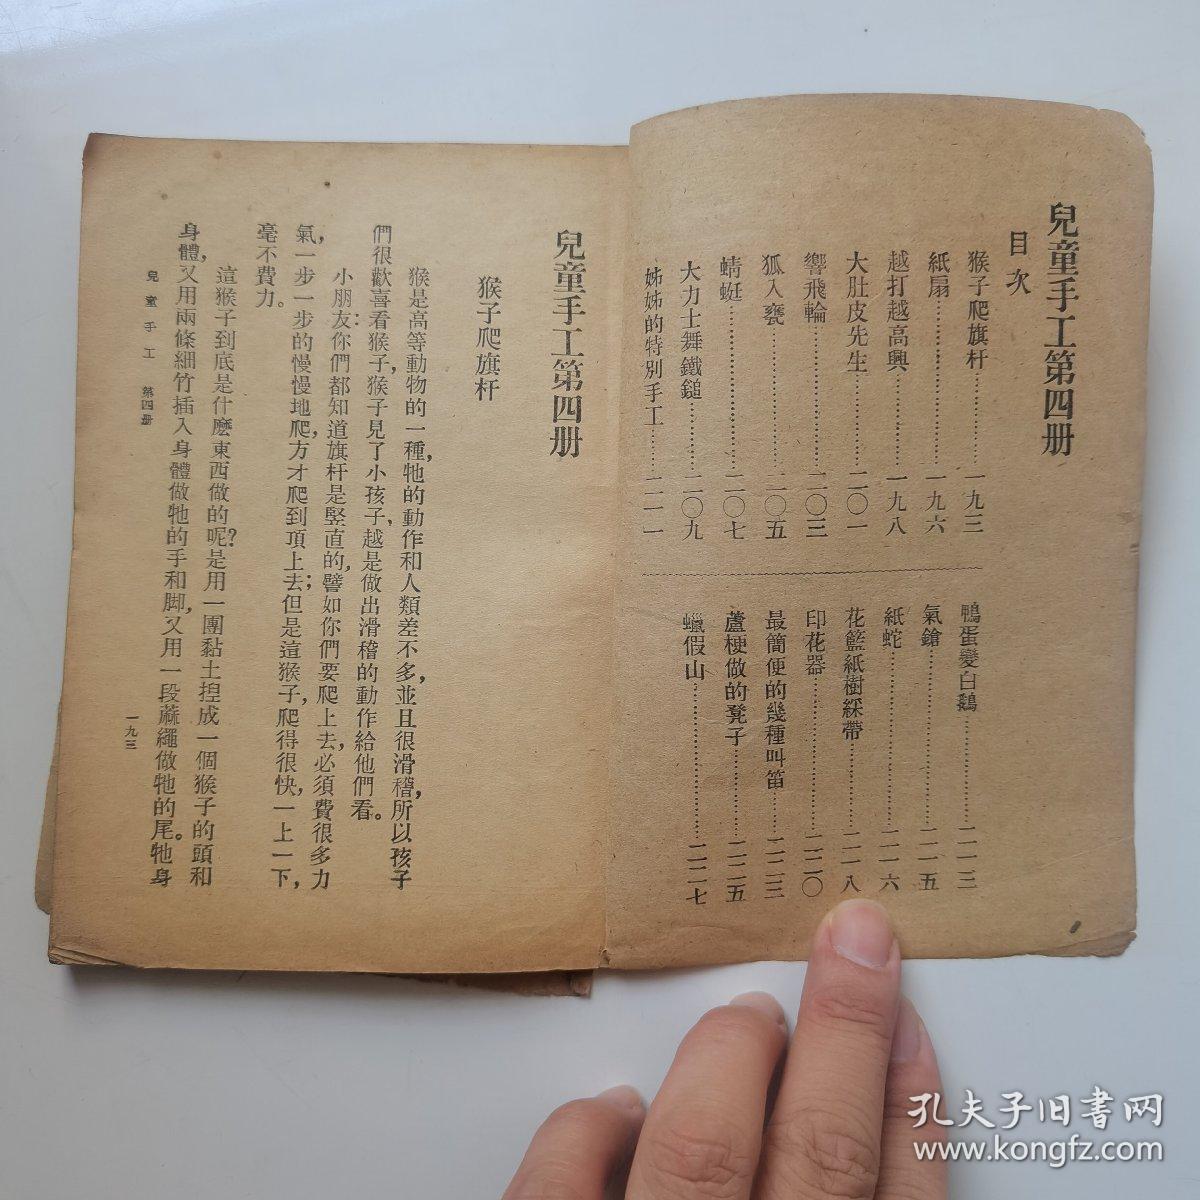 兒童手工第四册
目次
猴子爬旗杆…………一九三
紙扇…………一九六
越打越高興…………一九八
大肚皮先生…………二〇一
響飛輪…………二〇三
狐入甕…………二〇五
蜻蜓…………二〇七
大力士舞鐵鎚…………二〇九
姊姊的特别手工…………二一一
鴨蛋變白鵝…………二一三
氣鎗…………二一五
紙蛇…………二一六
花籃紙樹綵帶…………二一八
印花器…………二二〇
最簡便的幾種叫笛…………二二三
蘆梗做的凳子…………二二五
蠟假山…………二二七
兒童手工第四册
猴子爬旗杆
猴是高等動物的一種，牠的動作和人類差不多，並且很滑稽，所以孩子
們很歡喜看猴子，猴子見了小孩子，越是做出滑稽的動作給他們看。
小朋友：你們都知道旗杆是竪直的，譬如你們要爬上去，必須費很多力
氣，一步一步的慢慢地爬，方才爬到頂上去；但是這猴子，爬得很快，一上一下，
毫不費力。
這猴子到底是什麽東西做的呢？是用一團黏土揑成一個猴子的頭和
身體，又用兩條細竹插入身體做牠的手和脚，又用一段蔴繩做牠的尾。牠身
兒童手工 第四册
一九三
孔夫子旧书网
www.kongfz.com